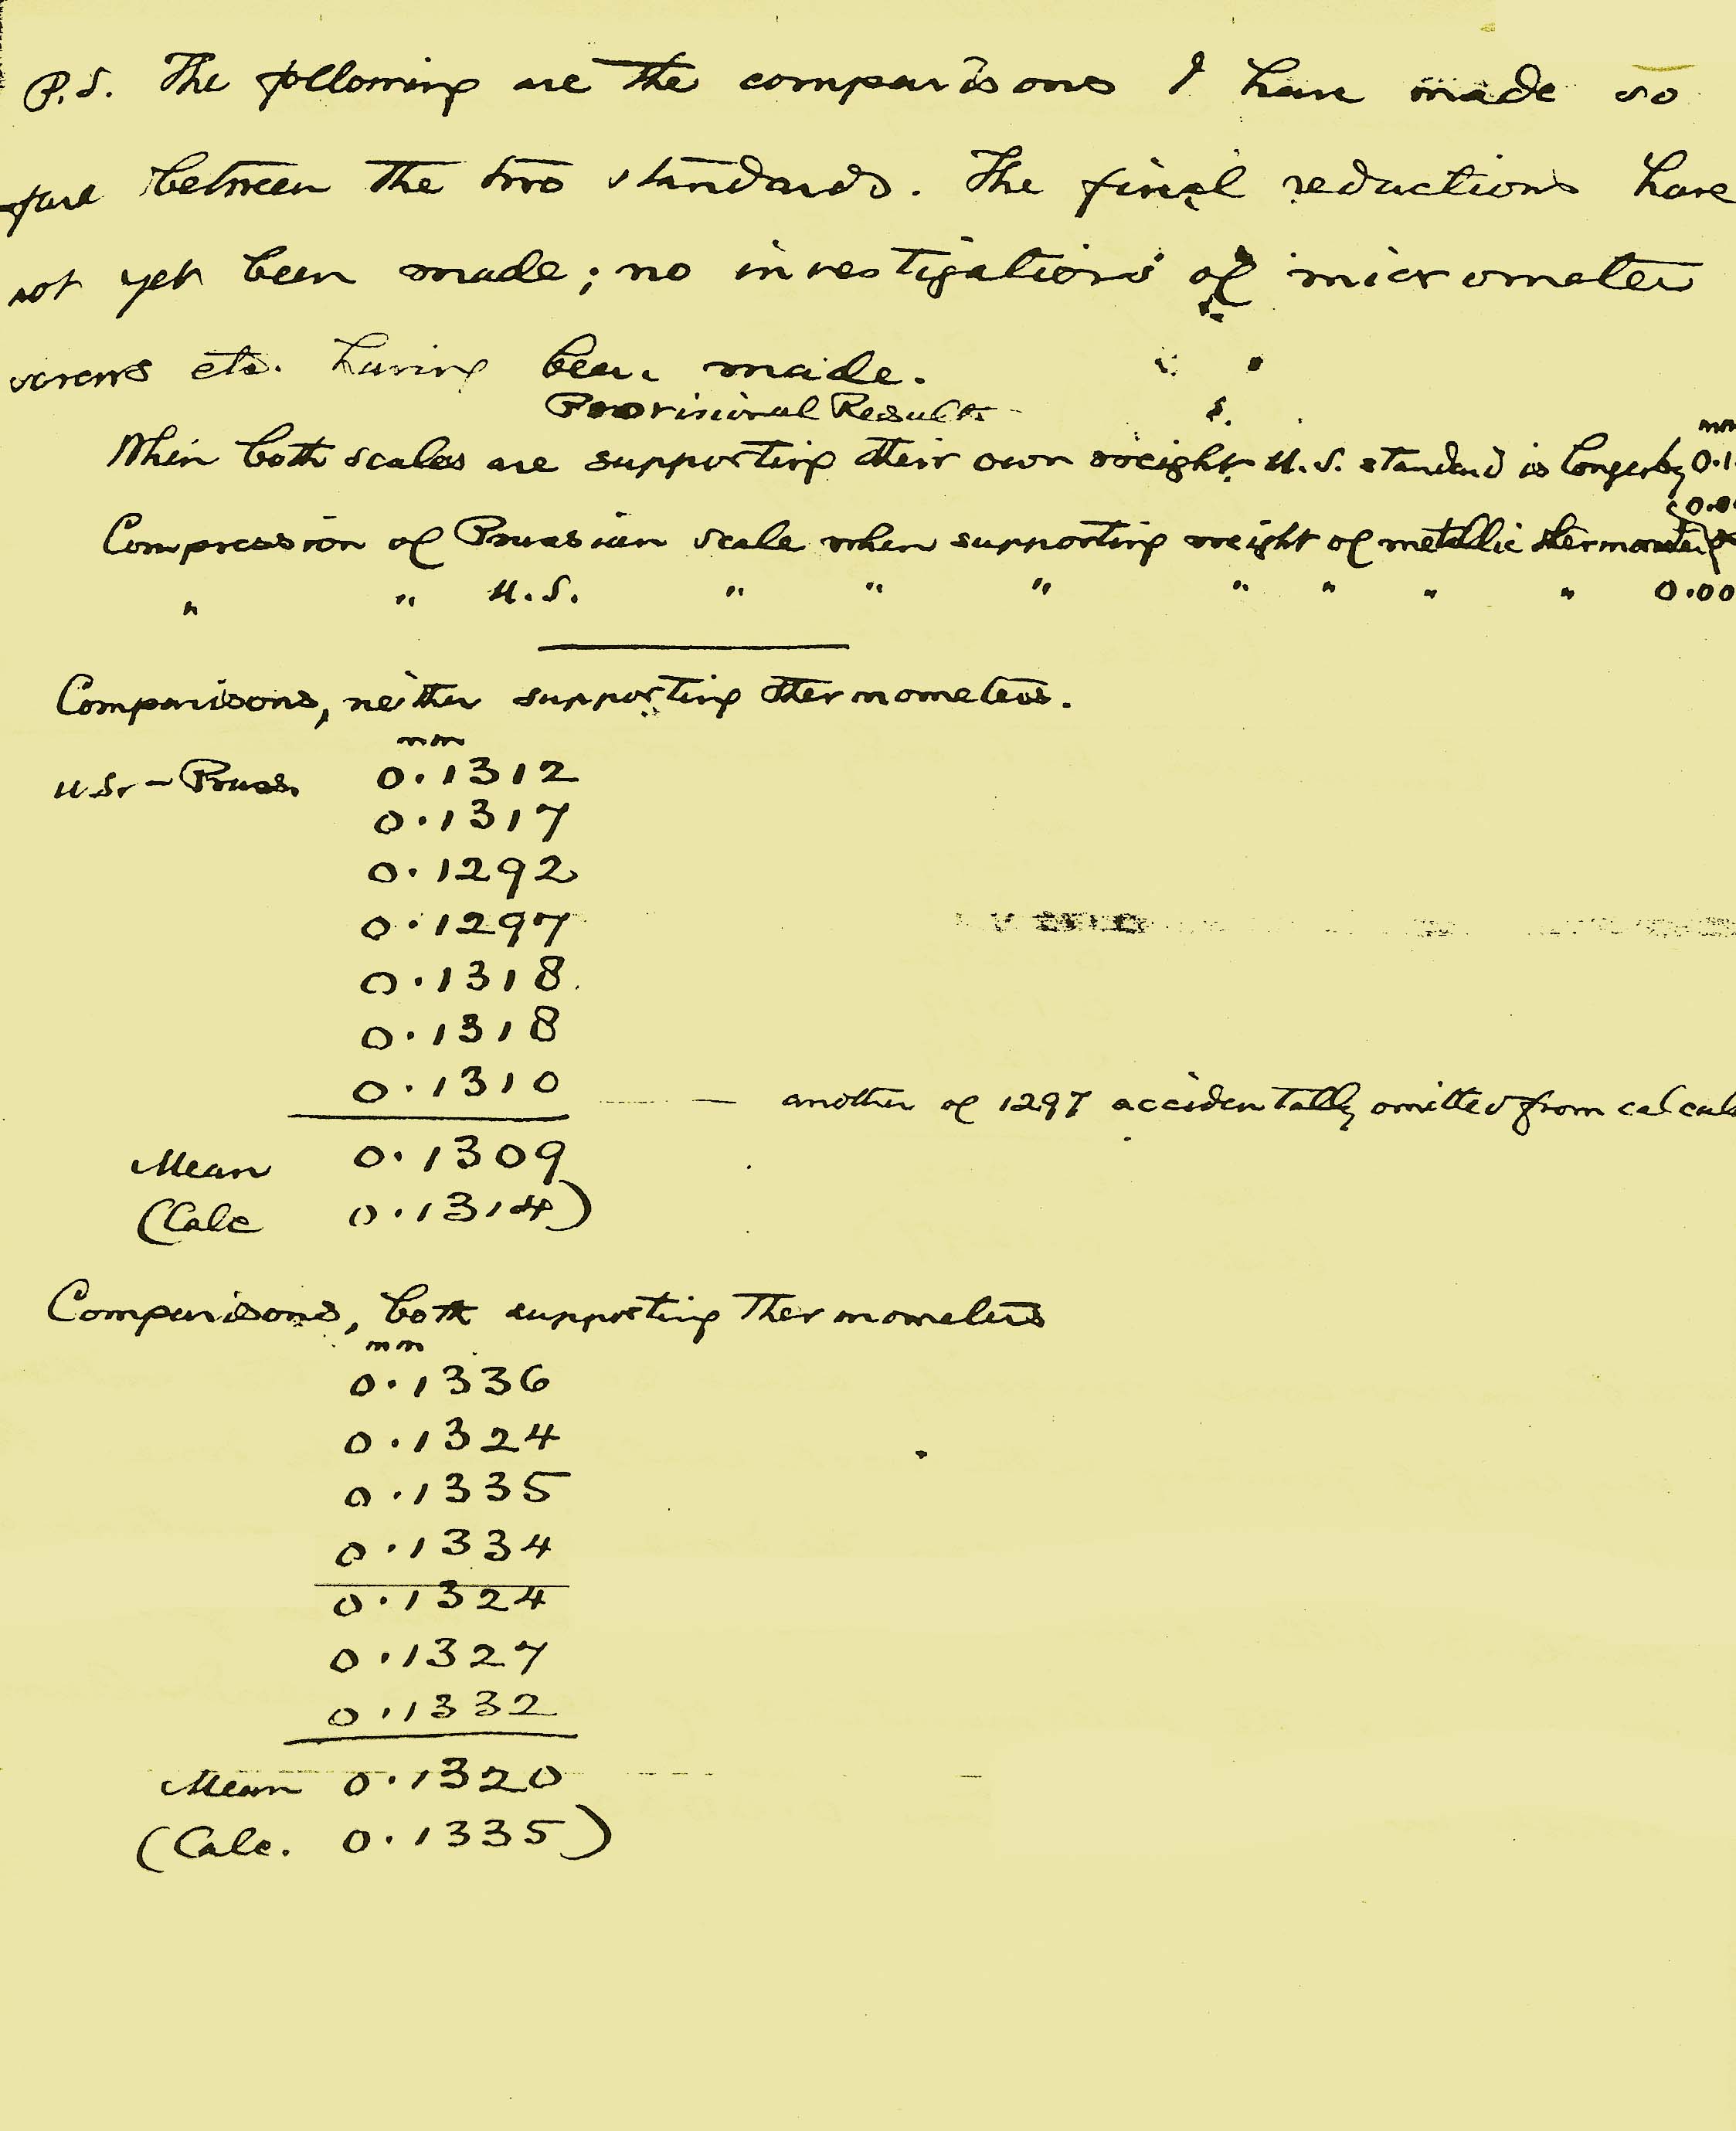 P.S. The following are the comparisons I have made so
far between the two standards. The final reductions have
not yet been made; no investigations of micrometer
screws etc. having been made.
Provisional Results
mm
When both scales are supporting their own weight U.S. standard is longer by 0.1
0.0
Compression of Prussian scale when supporting weight of metallic thermometer
" " U.S. " " " " " " " 0.00
Comparisons, neither supporting thermometers.
mm
U.S. – Pruss. 0.1312
0.1317
0.1292
0.1297
0.1318
0.1318
0.1310 — another of 1297 accidentally omitted from calcul
Mean 0.1309
(Calc 0.1314)
Comparisons, both supporting thermometers
mm
0.1336
0.1324
0.1335
0.1334
0.1324
0.1327
0.1332
Mean 0.1320
(Calc. 0.1335)